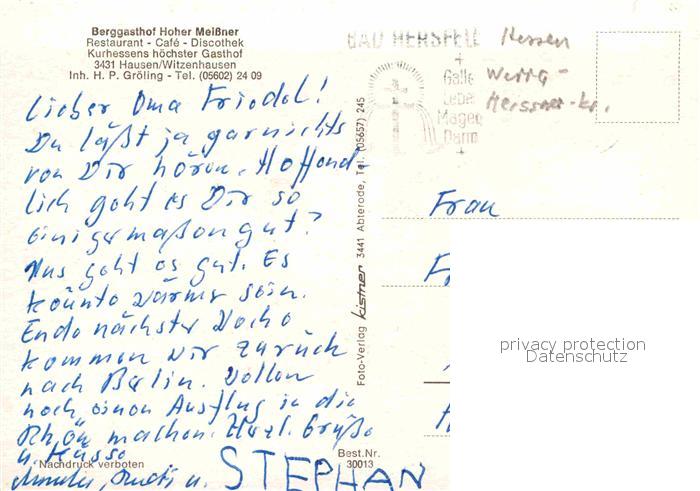 Berggasthof Hoher Meißner
Restaurant - Café - Discothek
Kurhessens höchster Gasthof
3431 Hausen/Witzenhausen
Inh. H. P. Gröling - Tel. (05602) 24 09
BAD HERSFELD
Galle
Leber
Magen
Darm
Hessen
Werra-
Meissner-Kr.
Lieber Oma Friedel!
Du läßt ja garnichts
von Dir hören. Hoffend-
lich geht es Dir so
einigermaßen gut?
Uns geht es gut. Es
könnte wärmer sein.
Ende nächster Woche
kommen wir zurück
nach Berlin. Wollen
noch einen Ausflug in die
Rhön machen. Herzl. Grüße
u. Küsse
u. STEPHAN
Nachdruck verboten
Best.Nr.
30013
Foto-Verlag kistner 3441 Abterode, Tel. (05657) 245
Frau
privacy protection
Datenschutz